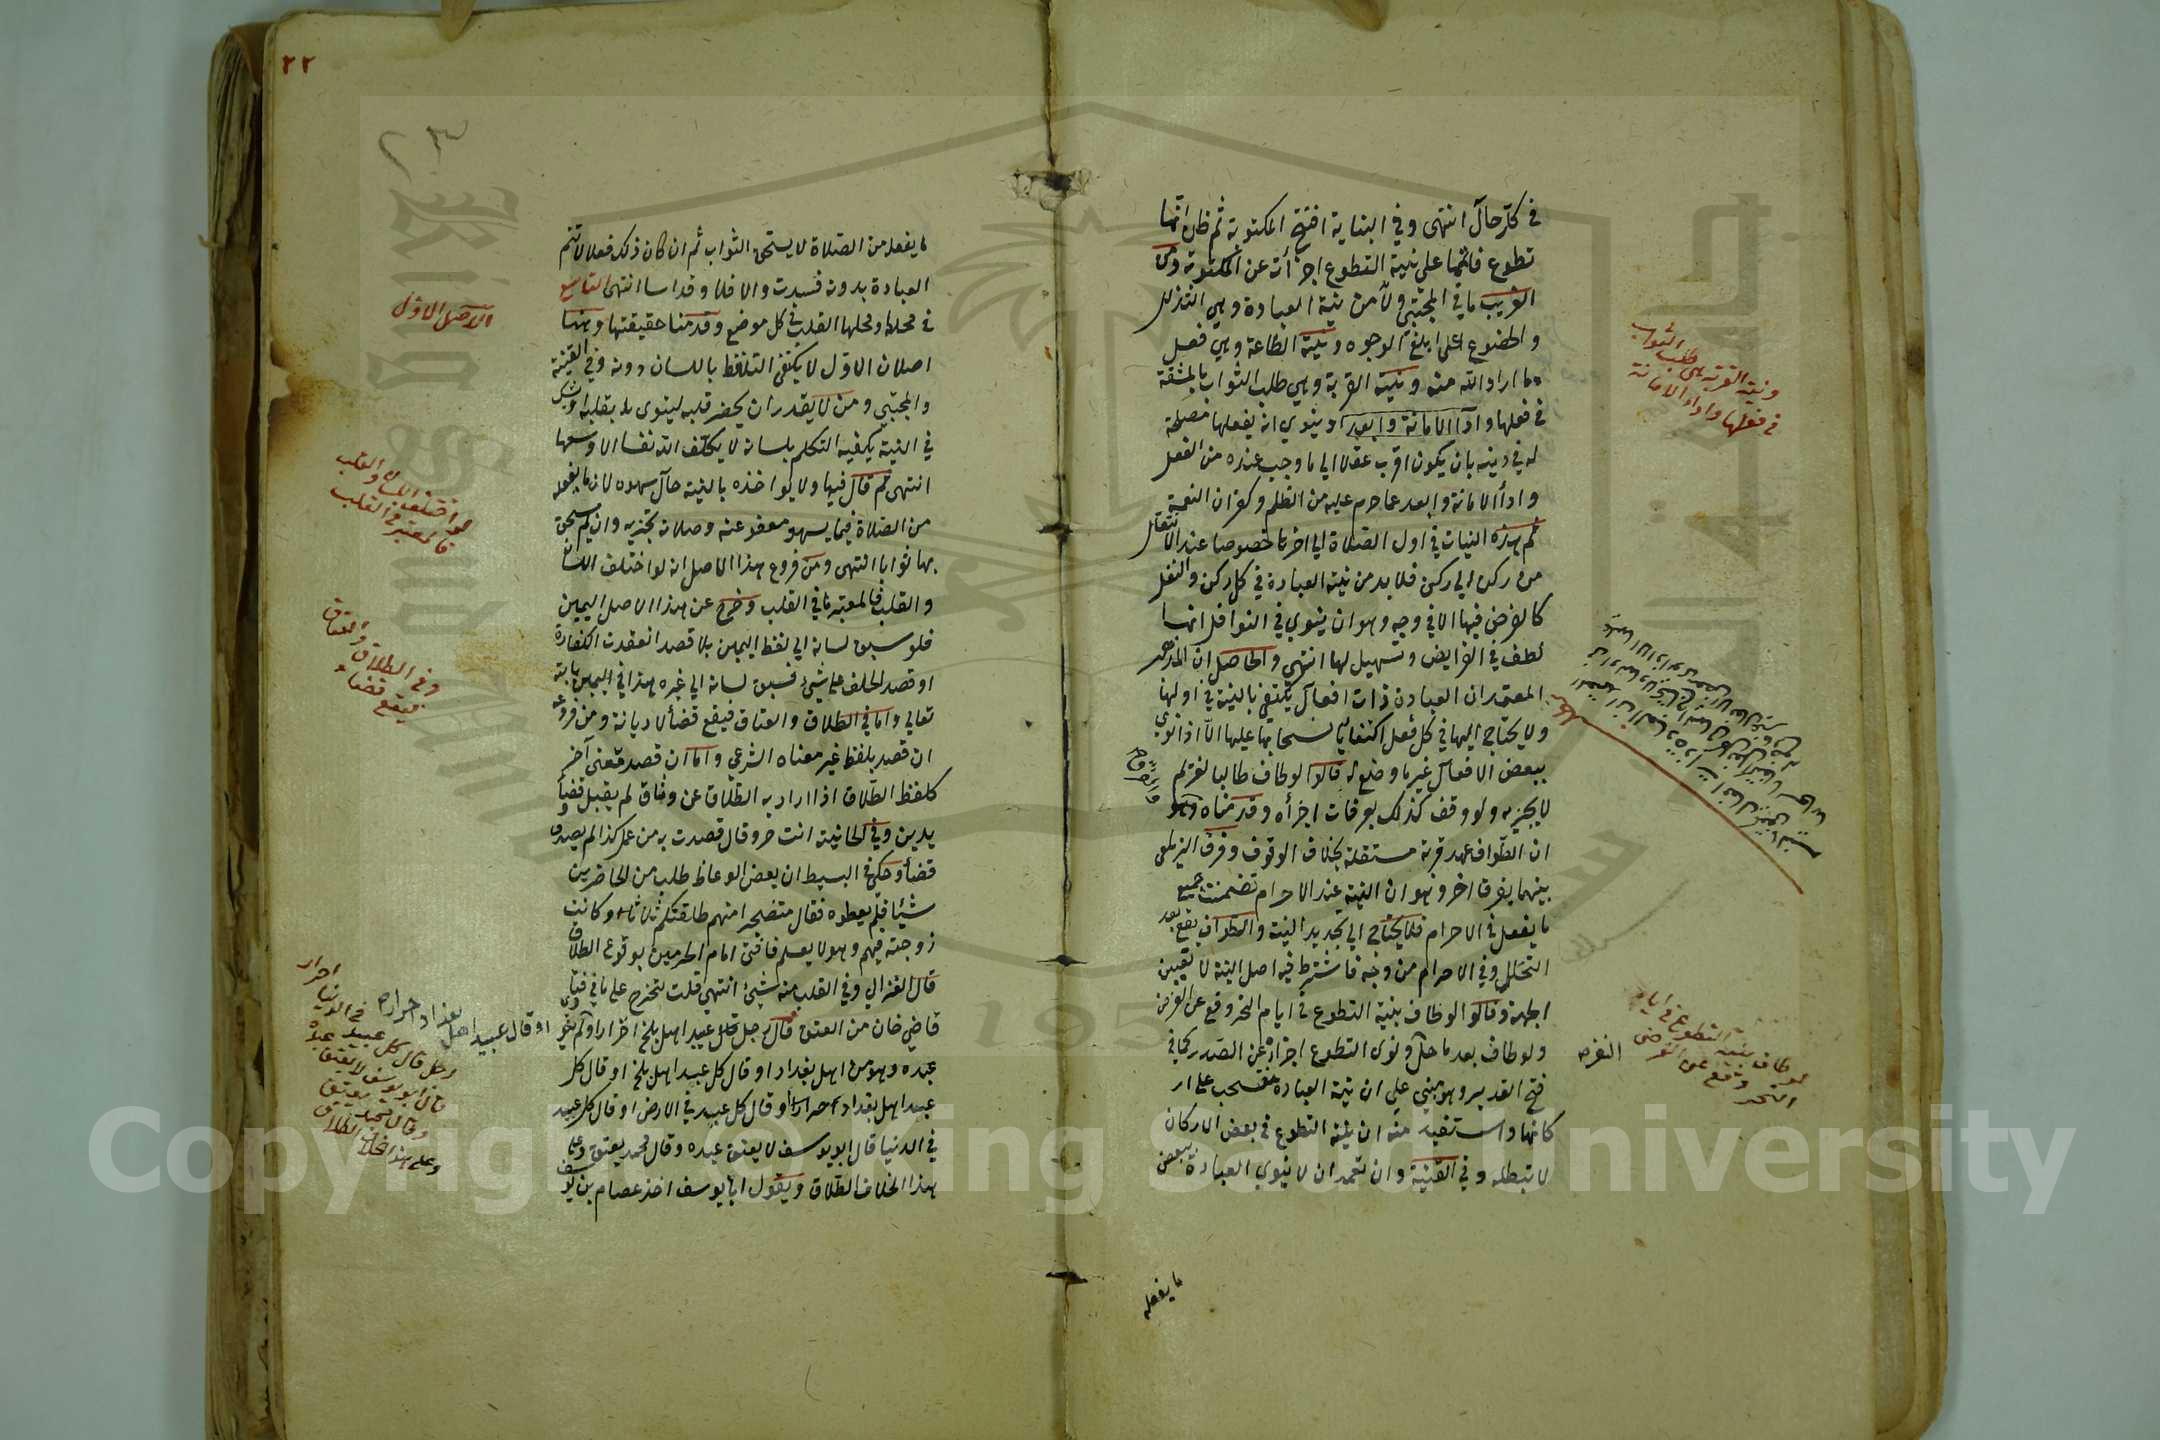 في كل حال انتهى وفي البناية افتتح المكتوبة ثم ظن انها
تطوع فاتمها على نية التطوع اجزأته عن المكتوبة ومن
الغريب ما في المجتبى ولا من نية العبادة وهي التذلل
والخضوع على ابلغ الوجوه ونية الطاعة وهي فعل
ما اراد الله منه ونية القربة وهي طلب الثواب بالمشقة
في فعلها واداء الامانة وابعد او ينوي انه يفعلها مصلحة
له في دينه بان يكون اقرب عقلا الى ما وجب عنده من الفعل
واداء الامانة وابعد عما حرم عليه من الظلم وكفران النعمة
ثم هذه النيات في اول الصلاة الى اخرها خصوصا عند الانتقال
من ركن الى ركن فلا بد من نية العبادة في كل ركن والنفل
كالفرض فيها الا في وجه وهو ان ينوي في النوافل انها
لطف في الفرايض وتسهيل لها انتهى والحاصل ان المذهب
المعتمد ان العبادة ذات افعال يكتفي بالنية في اولها
ولا يحتاج اليها في كل فعل اكتفاء بانسحابها عليها الا اذا نوى
ببعض الافعال غير ما وضع له قالوا لو طاف طالبا لغريم
لا يجزيه ولو وقف كذلك بعرفات اجزأه وقدمناه وهو
ان الطواف عهد قربة مستقلة بخلاف الوقوف وفرق الزيلعي
بينهما بفرق اخر وهو ان النية عند الاحرام تضمنت جميع
ما يفعل في الاحرام فلا يحتاج الى تجديد النية والطواف يقع بعد
التحلل وفي الاحرام من وجه فاشترط فيه اصل النية لا تعيين
الجهة وقالوا لو طاف بنية التطوع في ايام النحر وقع عن الفرض
ولو طاف بعد ما حل ونوى التطوع اجزأه عن الصدر كما في
فتح القدير وهو مبني على ان نية العبادة تنسحب على ار
كانها واستفيد منه ان نية التطوع في بعض الاركان
لا تبطله وفي القنية وان تعمد ان لا ينوي العبادة ببعض
ما يفعله
ونية القربة هي طلب الثواب
في فعلها واداء الامانة
لو طاف بنية التطوع في ايام
النحر وقع عن الفرض
٢٢
ما يفعله من الصلاة لا يستحق الثواب ثم ان كان ذلك فعلا لا تتم
العبادة بدونه فسدت والا فلا وقد اسا انتهى التاسع
في محلها ومحلها القلب في كل موضع وقدمنا حقيقتها وهنا
اصلان الاول لا يكتفي التلفظ باللسان دونه وفي القنية
والمجتبى ومن لا يقدر ان يحضر قلبه لينوي بقلبه او يشك
في النية يكفيه التكلم بلسانه لا يكلف الله نفسا الا وسعها
انتهى ثم قال فيها ولا يؤاخذه بالنية حال سهوه لان ما يفعله
من الصلاة فيما يسهو معفو عنه وصلاته تجزيه وان لم يستحق
بها ثوابا انتهى ومن فروع هذا الاصل انه لو اختلف اللسان
والقلب فالمعتبر ما في القلب وخرج عن هذا الاصل اليمين
فلو سبق لسانه الى لفظ اليمين بلا قصد انعقدت الكفارة
او قصد الحلف على شيء فسبق لسانه الى غيره هذا في اليمين بالله
تعالى واما في الطلاق والعتاق فيقع قضاء لا ديانة ومن فروعه
ان قصد بلفظ غير معناه الشرعي واما ان قصد معنى آخر
كلفظ الطلاق اذا اراد به الطلاق عن وثاق لم يقبل قضاء و
يدين وفي الخانية انت حر وقال قصدت به من عمل كذا لم يصدق
قضاء وحكي في البسيط ان بعض الوعاظ طلب من الحاضرين
شيئا فلم يعطوه فقال متضجرا منهم طلقتكم ثلاثا وكانت
زوجته فيهم وهو لا يعلم فافتى امام الحرمين بوقوع الطلاق
قال الغزالي وفي القلب منه شيء انتهى قلت يتخرج على ما في فتاوى
قاضي خان من العتق قال رجل قال عبيد اهل بلخ احرار ولم ينو
عبده وهو من اهل بغداد او قال كل عبيد اهل بلخ او قال كل
عبيد اهل بغداد احرار او قال كل عبيد في الارض او قال كل عبيد
في الدنيا قال ابو يوسف لا يعتق عبده وقال محمد يعتق وعلى
هذا الخلاف الطلاق وبقول ابي يوسف اخذ عصام بن يوسف
الاصل الاول
لو اختلف اللسان والقلب
فالمعتبر ما في القلب
وفي الطلاق والعتاق
فيقع قضاء
او قال عبيد اهل بغداد احرار
رجل قال كل عبيد في الدنيا احرار
قال ابو يوسف لا يعتق عبده
وقال محمد يعتق
وعلى هذا الخلاف الطلاق
Copyright © King Saud University
195